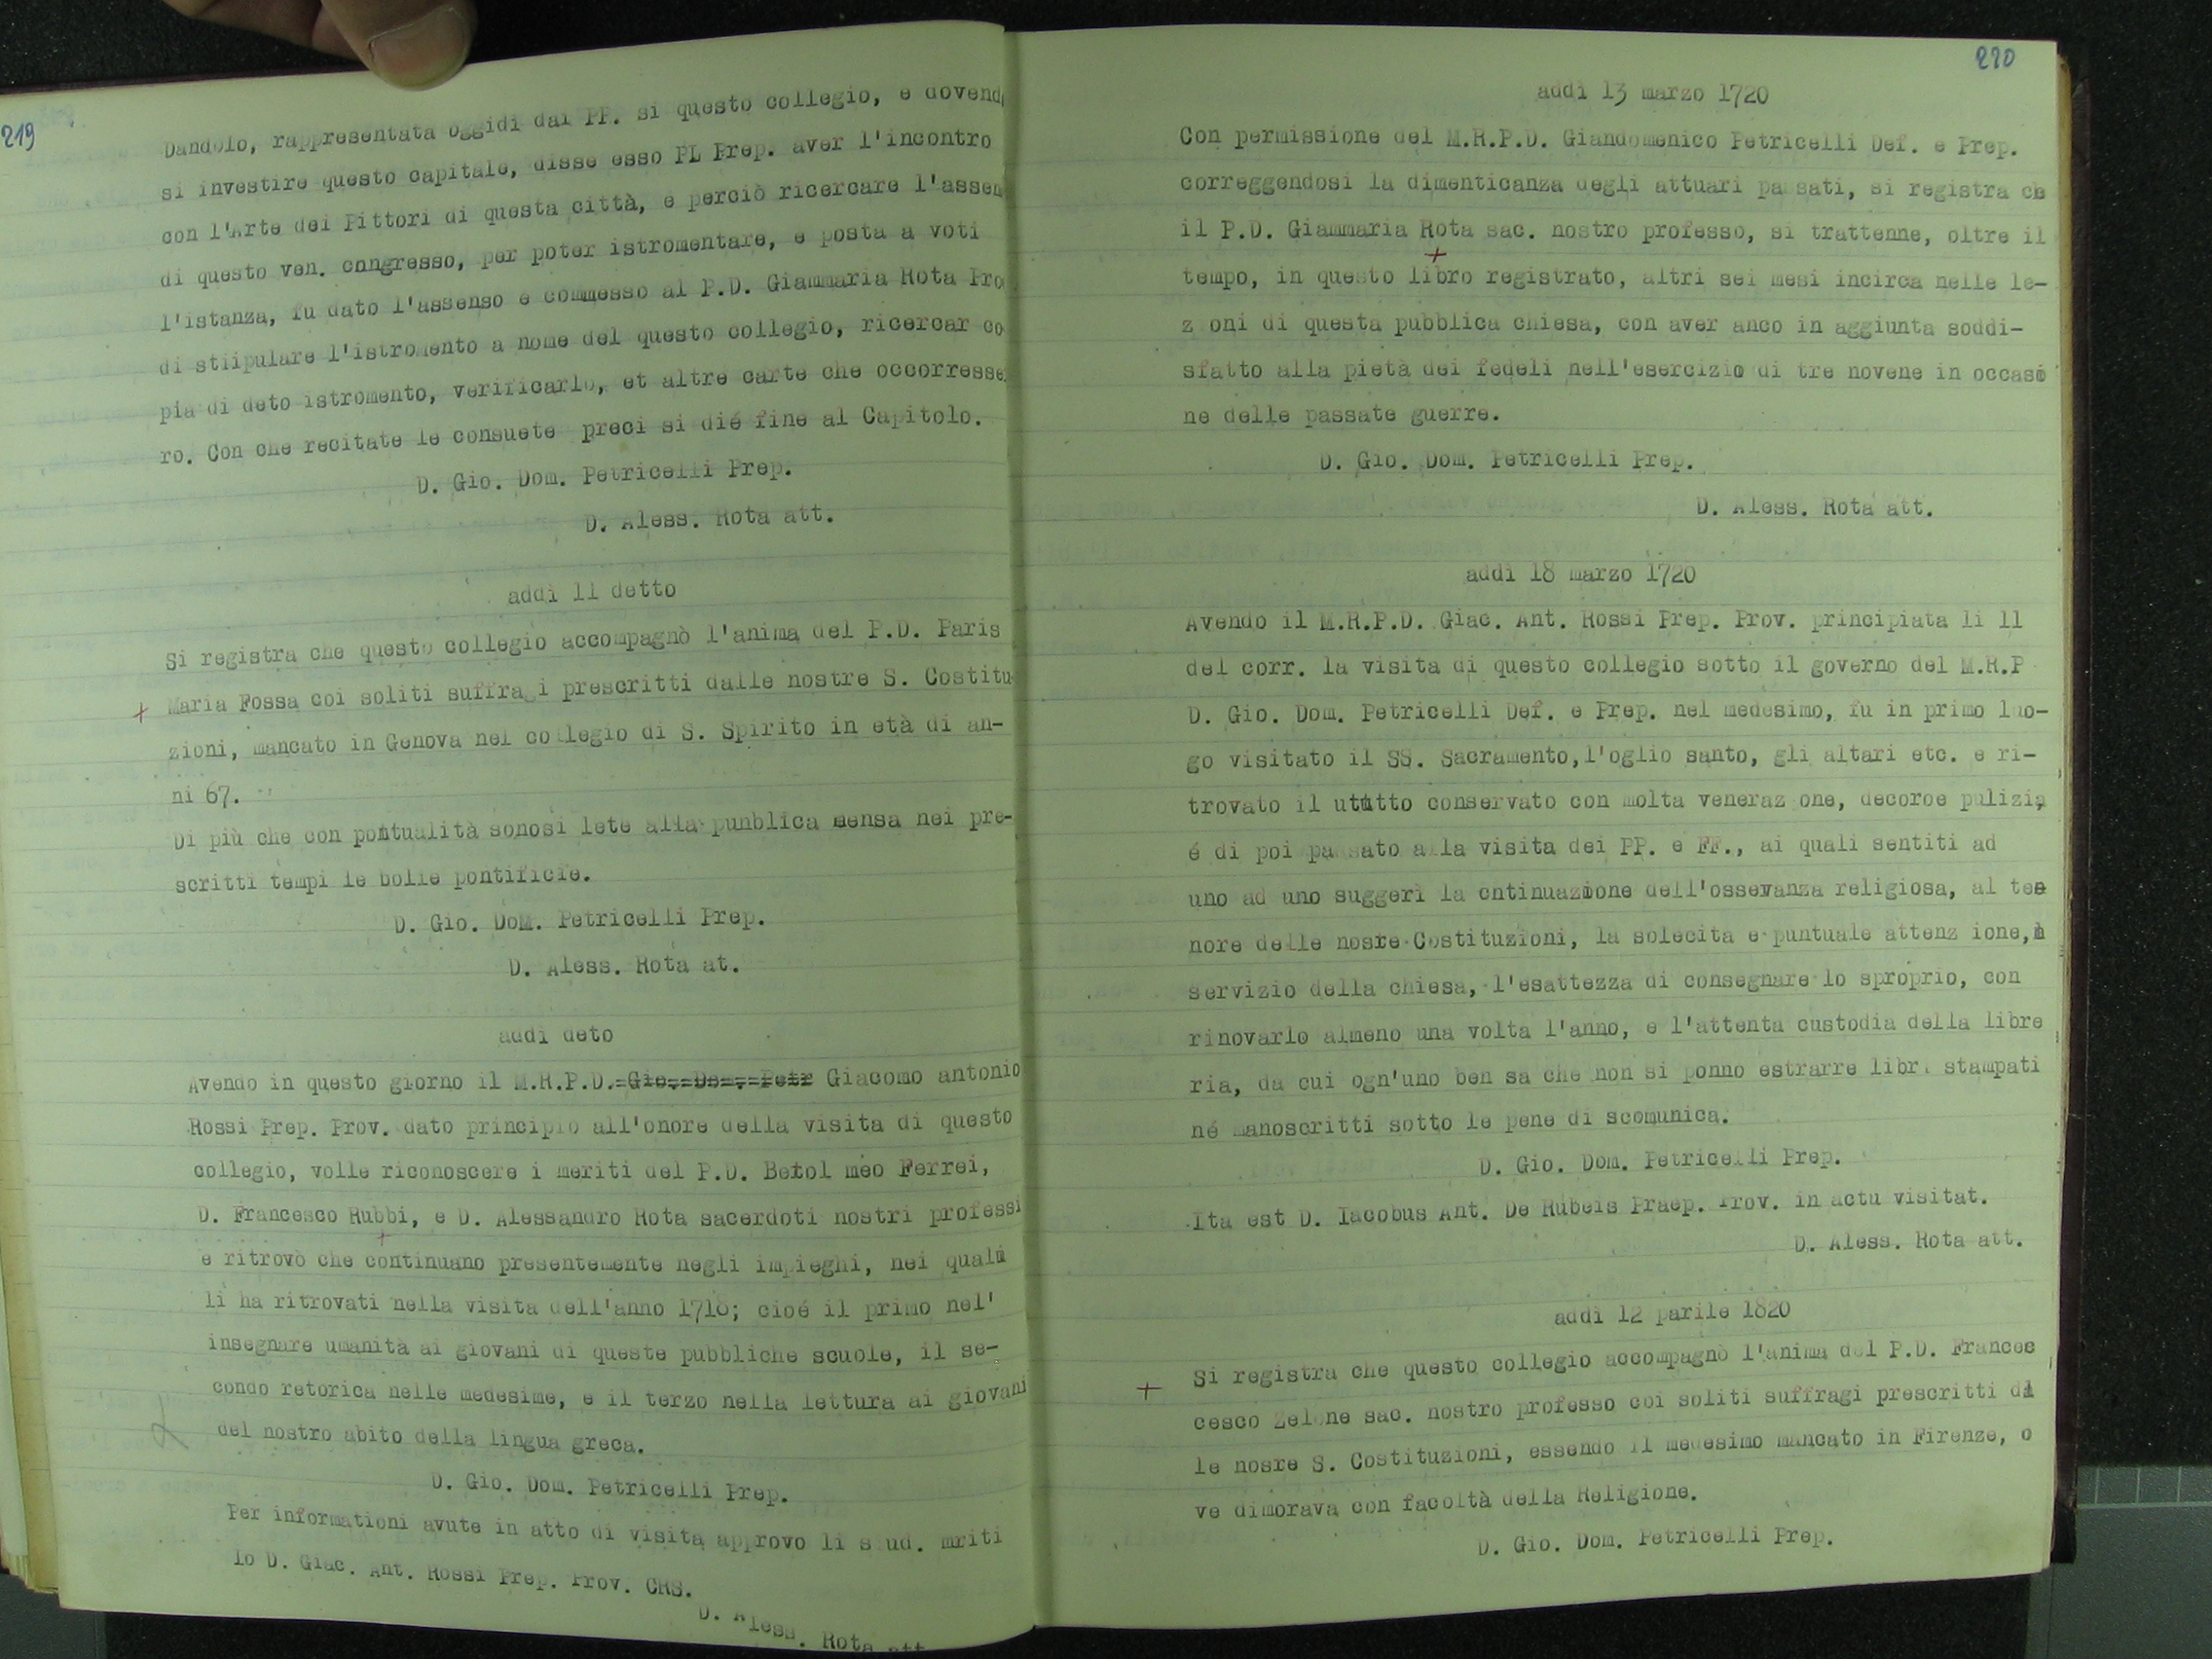 219
Dandolo, rappresentata oggidi dai PP. si questo collegio, e dovend
si investire questo capitale, disse esso PL Prep. aver l'incontro
con l'Arte dei Pittori di questa città, e perciò ricercare l'assen
di questo ven. congresso, per poter istromentare, e posta a voti
l'istanza, fu dato l'assenso e commesso al P.D. Giammaria Rota Pro
di stiipulare l'istromento a nome del questo collegio, ricercar co
pia di deto istromento, verificarlo, et altre carte che occorresse
ro. Con che recitate le consuete preci si dié fine al Capitolo.
D. Gio. Dom. Petricelli Prep.
D. Aless. Rota att.
addì 11 detto
Si registra che questo collegio accompagnò l'anima del P.D. Paris
+ Maria Fossa coi soliti suffragi prescritti dalle nostre S. Costitu
zioni, mancato in Genova nel collegio di S. Spirito in età di an-
ni 67.
Di più che con pontualità sonosi lete alla punblica mensa nei pre-
scritti tempi le bolle pontificie.
D. Gio. DoM. Petricelli Prep.
D. Aless. Rota at.
addì deto
Avendo in questo giorno il M.R.P.D. Gio. Dom. Petr Giacomo antonio
Rossi Prep. Prov. dato principio all'onore della visita di questo
collegio, volle riconoscere i meriti del P.D. Betol meo Ferrei,
D. Francesco Rubbi, e D. Alessandro Rota sacerdoti nostri professi
+
e ritrovò che continuano presentemente negli impieghi, nei quali
li ha ritrovati nella visita dell'anno 1718; cioé il primo nel'
insegnare umanità ai giovani di queste pubbliche scuole, il se-
condo retorica nelle medesime, e il terzo nella lettura ai giovani
del nostro abito della lingua greca.
D. Gio. Dom. Petricelli Prep.
Per informationi avute in atto di visita approvo li sud. mriti
Io D. Giac. Ant. Rossi Prep. Prov. CRS.
D. Aless. Rota att
220
addì 13 marzo 1720
Con permissione del M.R.P.D. Giandomenico Petricelli Def. e Prep.
correggendosi la dimenticanza degli attuari passati, si registra ch
il P.D. Giammaria Rota sac. nostro professo, si trattenne, oltre il
+
tempo, in questo libro registrato, altri sei mesi incirca nelle le-
z oni di questa pubblica chiesa, con aver anco in aggiunta soddi-
sfatto alla pietà dei fedeli nell'esercizio di tre novene in occasi
ne delle passate guerre.
D. Gio. Dom. Petricelli Prep.
D. Aless. Rota att.
addì 18 marzo 1720
Avendo il M.R.P.D. Giac. Ant. Rossi Prep. Prov. principiata li 11
del corr. la visita di questo collegio sotto il governo del M.R.P
D. Gio. Dom. Petricelli Def. e Prep. nel medesimo, fu in primo luo-
go visitato il SS. Sacramento, l'oglio santo, gli altari etc. e ri-
trovato ilututto conservato con molta veneraz one, decoroe pulizia,
é di poi passato alla visita dei PP. e FF., ai quali sentiti ad
uno ad uno suggerì la cntinuazione dell'ossevanza religiosa, al te
nore delle nosre Costituzioni, la solecita e puntuale attenz ione,
servizio della chiesa, l'esattezza di consegnare lo sproprio, con
rinovarlo almeno una volta l'anno, e l'attenta custodia della libre
ria, da cui ogn'uno ben sa che non si ponno estrarre libri stampati
né manoscritti sotto le pene di scomunica.
D. Gio. Dom. Petricelli Prep.
Ita est D. Iacobus Ant. De Rubeis Praep. Prov. in actu visitat.
D. Aless. Rota att.
addì 12 parile 1820
Si registra che questo collegio accompagnò l'anima del P.D. Frances
+ cesco Zelone sac. nostro professo coi soliti suffragi prescritti dl
le nosre S. Costituzioni, essendo il medesimo mancato in Firenze, o
ve dimorava con facoltà della Religione.
D. Gio. Dom. Petricelli Prep.